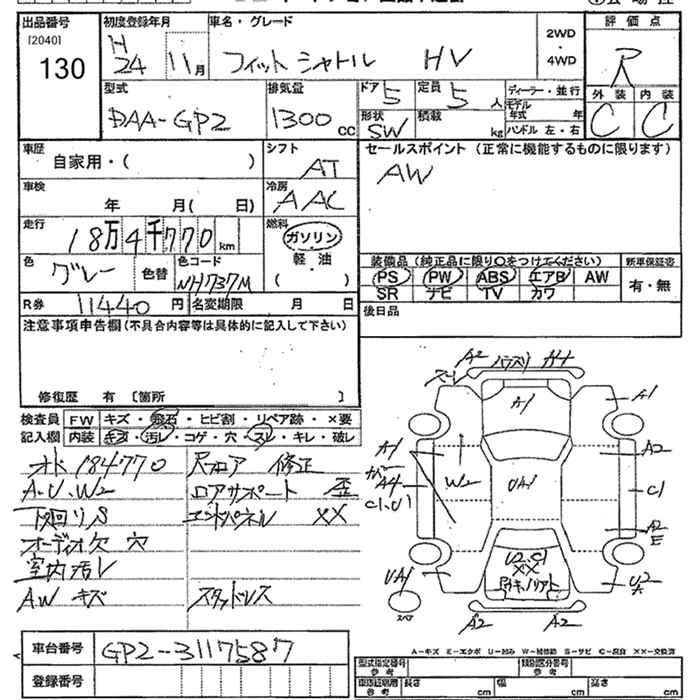 出品番号 初度登録年月 車名・グレード 評価点
[2040]
130
H 24 11月 フィットシャトル HV 2WD・4WD R
型式 排気量 ドア 5 定員 5人 ディーラー・並行 外装 内装
DAA-GP2 1300cc 形状 SW 積載 kg モデル年式 年 C C
ハンドル 左・右
車歴 シフト セールスポイント(正常に機能するものに限ります)
自家用・( ) AT AW
車検 冷房
年 月( 日) AAC
走行 燃料
18万4千770km ガソリン
色 色替 色コード 軽・油 装備品(純正品に限り○をつけてください) 新車保証書
グレー NH737M ( ) PS PW ABS エアB AW 有・無
SR ナビ TV カワ
R券 11440円 名変期限 月 日 後日品
注意事項申告欄(不具合内容等は具体的に記入して下さい)
修復歴 有 [箇所 ]
検査員 FW キズ・飛石・ヒビ割・リペア跡・×要
記入欄 内装 キズ・汚レ・コゲ・穴・スレ・キレ・破レ
オド184770 尺フロア 修正
A.U.W2 ロアサポート 歪
下回リS エンドパネル XX
オーディオ欠 穴
室内汚レ
A.W キズ スタッドレス
A2 A4
A1 A1
A1 A2
A4 W2 UA1 C1
C1,U1
A2
E
U2.C1
XX
UA1 U2
A
スペア A2 A2
A-キズ E-エクボ U-凹み W-補修跡 S-サビ C-腐食 XX-交換済
車台番号 GP2-3117587
登録番号
型式指定番号 参考 類別区分番号 参考
長さ cm 幅 cm 高さ cm